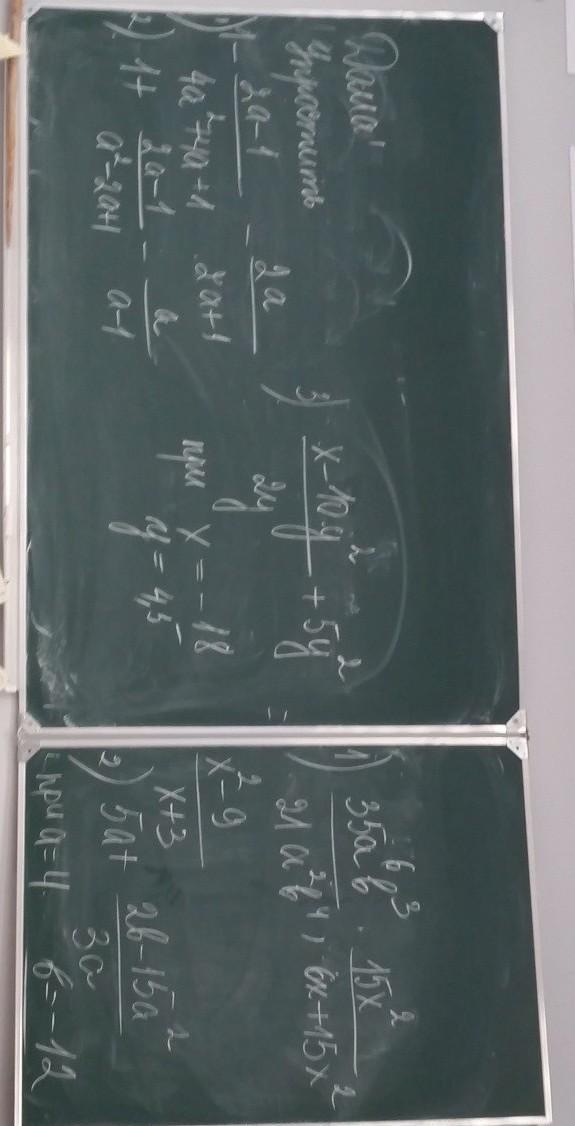 Дома!
Упростить
1) 1 - (2a-1)/(4a²+4a+1) - 2a/(2a+1)
2) 1 + (2a-1)/(a²-2a+1) - a/(a-1)
3) (x-10y²)/2y + 5y² =
при x = -18
y = 4,5
1) 35a⁶b³/21a²b⁴ ; 15x²/(6x+15x²)
(x²-9)/(x+3)
2) 5a + (2b-15a²)/3a
при a=4 b=-12